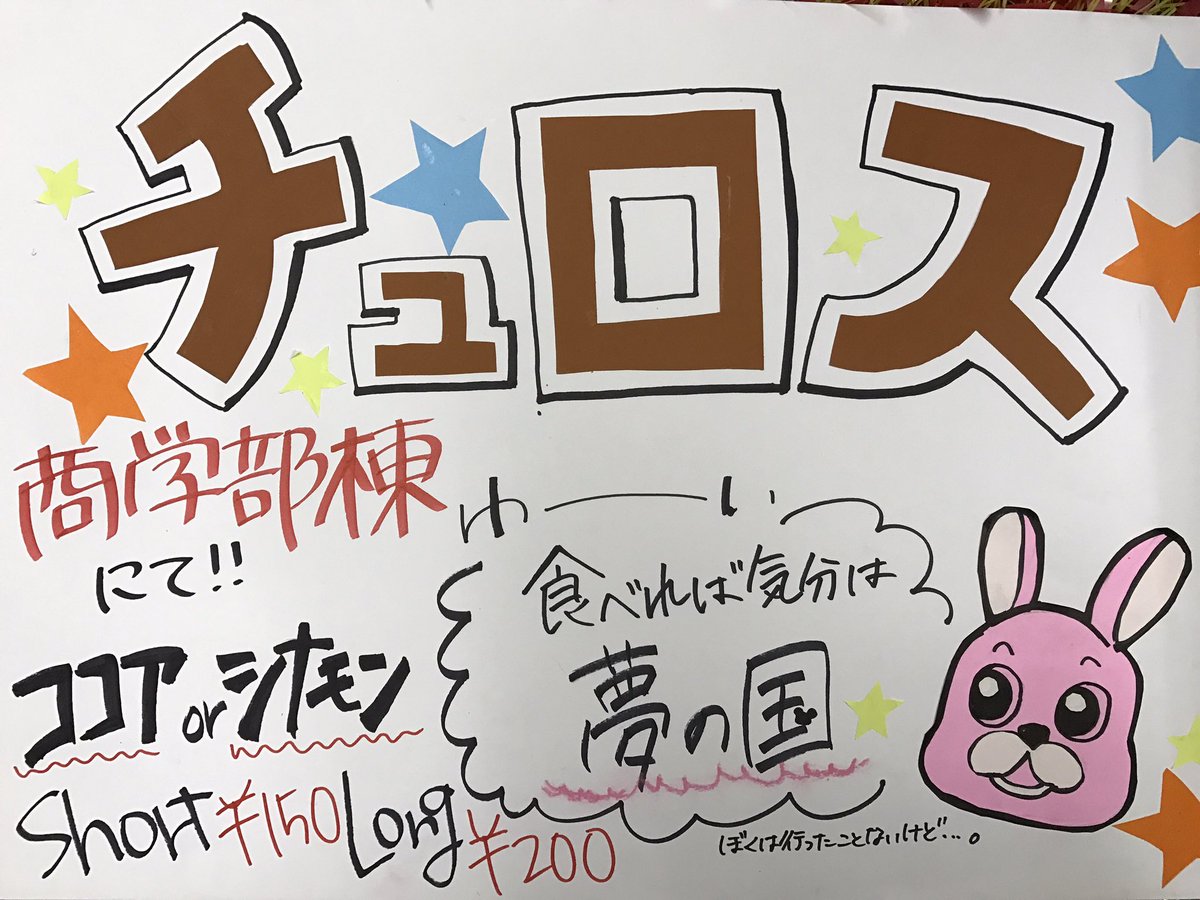 チュロス
商学部棟
にて!!
ココア or シナモン
Short ¥150 Long ¥200
食べれば気分は
夢の国
ぼくは行ったことないけど…。